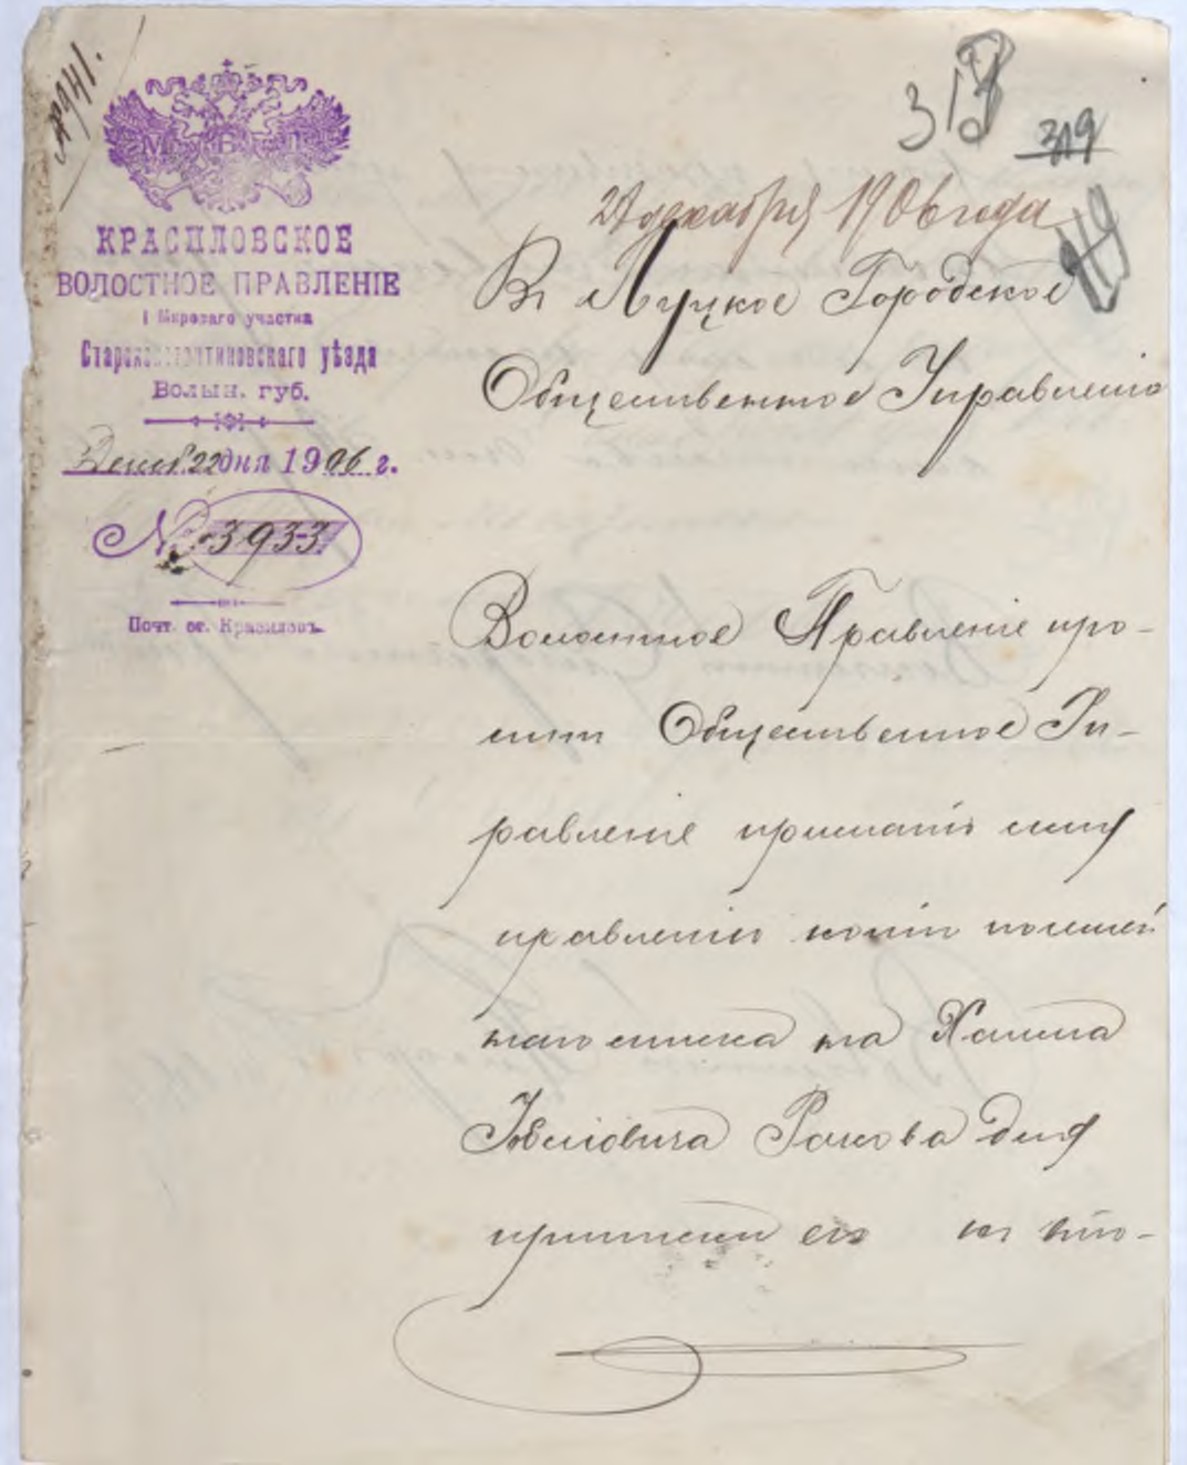 № 941.
318
319
М. В. Д.
27 декабря 1906 года
КРАСИЛОВСКОЕ
ВОЛОСТНОЕ ПРАВЛЕНІЕ
1 Мирового участка
Староконстантиновскаго уѣзда
Волын. губ.
Декаб. 22 дня 1906 г.
№ 3933
Почт. ст. Красиловъ
Въ Луцкое Городское
Общественное Управленіе
Волостное Правленіе про-
ситъ Общественное Уп-
равленіе прислать сему
правленію копію посемей
наго списка на Хаима
Іовелевича для
приписки его къ